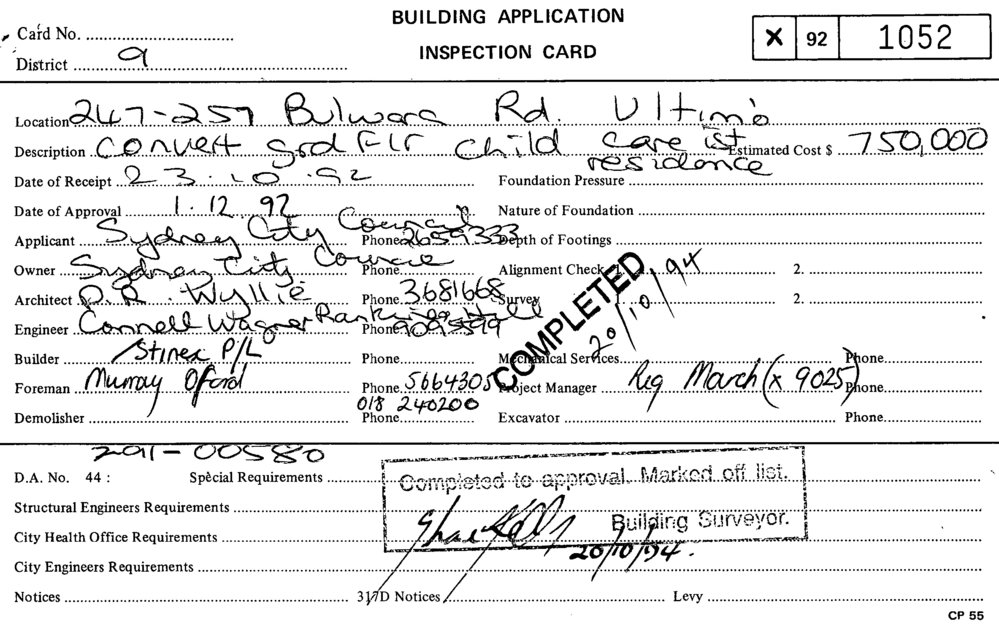 BUILDING APPLICATION
INSPECTION CARD
Card No.
District 9
X 92 1052
Location 247-257 Bulwara Rd. Ultimo
Description Convert grd Flr child care 1st residance Estimated Cost $ 750,000
Date of Receipt 23.10.92 Foundation Pressure
Date of Approval 1.12.92 Nature of Foundation
Applicant Sydney City Council Phone 2659333 Depth of Footings
Owner Sydney City Council Phone Alignment Check 1. 2.
Architect D.R. Wyllie Phone 3681668 Survey 1. 2.
Engineer Connell Wagner Rankine Hill Phone 9095599
COMPLETED
20/10/94
Builder Stinex P/L Phone Mechanical Services Phone
Foreman Murray Phone 5664305 Project Manager Reg March (x 9025) Phone
018 240200
Demolisher Phone Excavator Phone
291-00580
D.A. No. 44 : Special Requirements
Completed to approval. Marked off list.
Structural Engineers Requirements
Building Surveyor.
City Health Office Requirements
20/10/94.
City Engineers Requirements
Notices 317D Notices Levy
CP 55